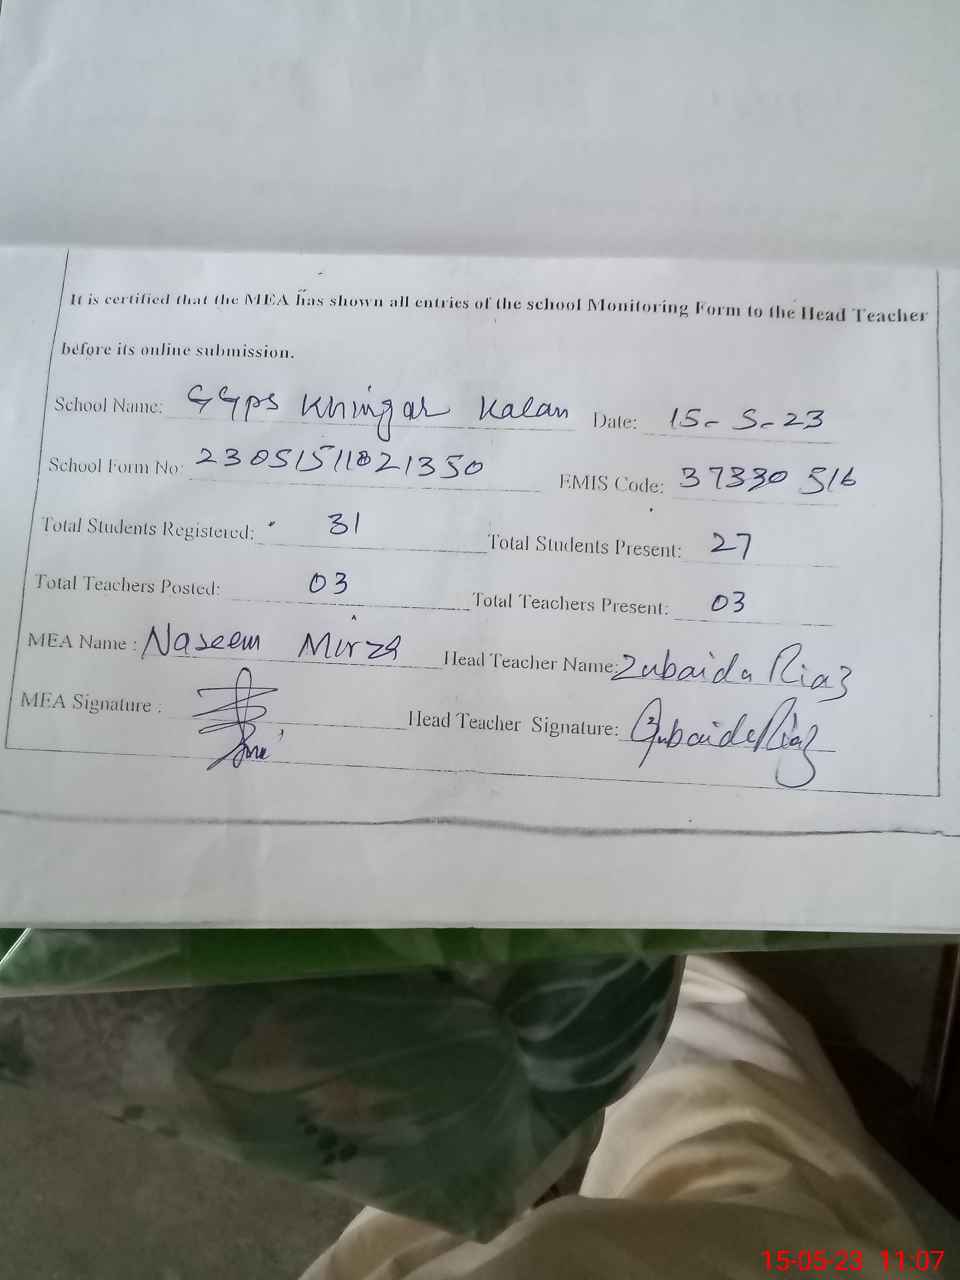 It is certified that the MEA has shown all entries of the school Monitoring Form to the Head Teacher
before its online submission.
School Name: GGPS Khingar Kalan Date: 15-5-23
School Form No: 23051511021350 EMIS Code: 37330516
Total Students Registered: 31 Total Students Present: 27
Total Teachers Posted: 03 Total Teachers Present: 03
MEA Name : Naseem Mirza Head Teacher Name: Zubaida Riaz
MEA Signature : Head Teacher Signature: Zubaida Riaz
15-05-23 11:07